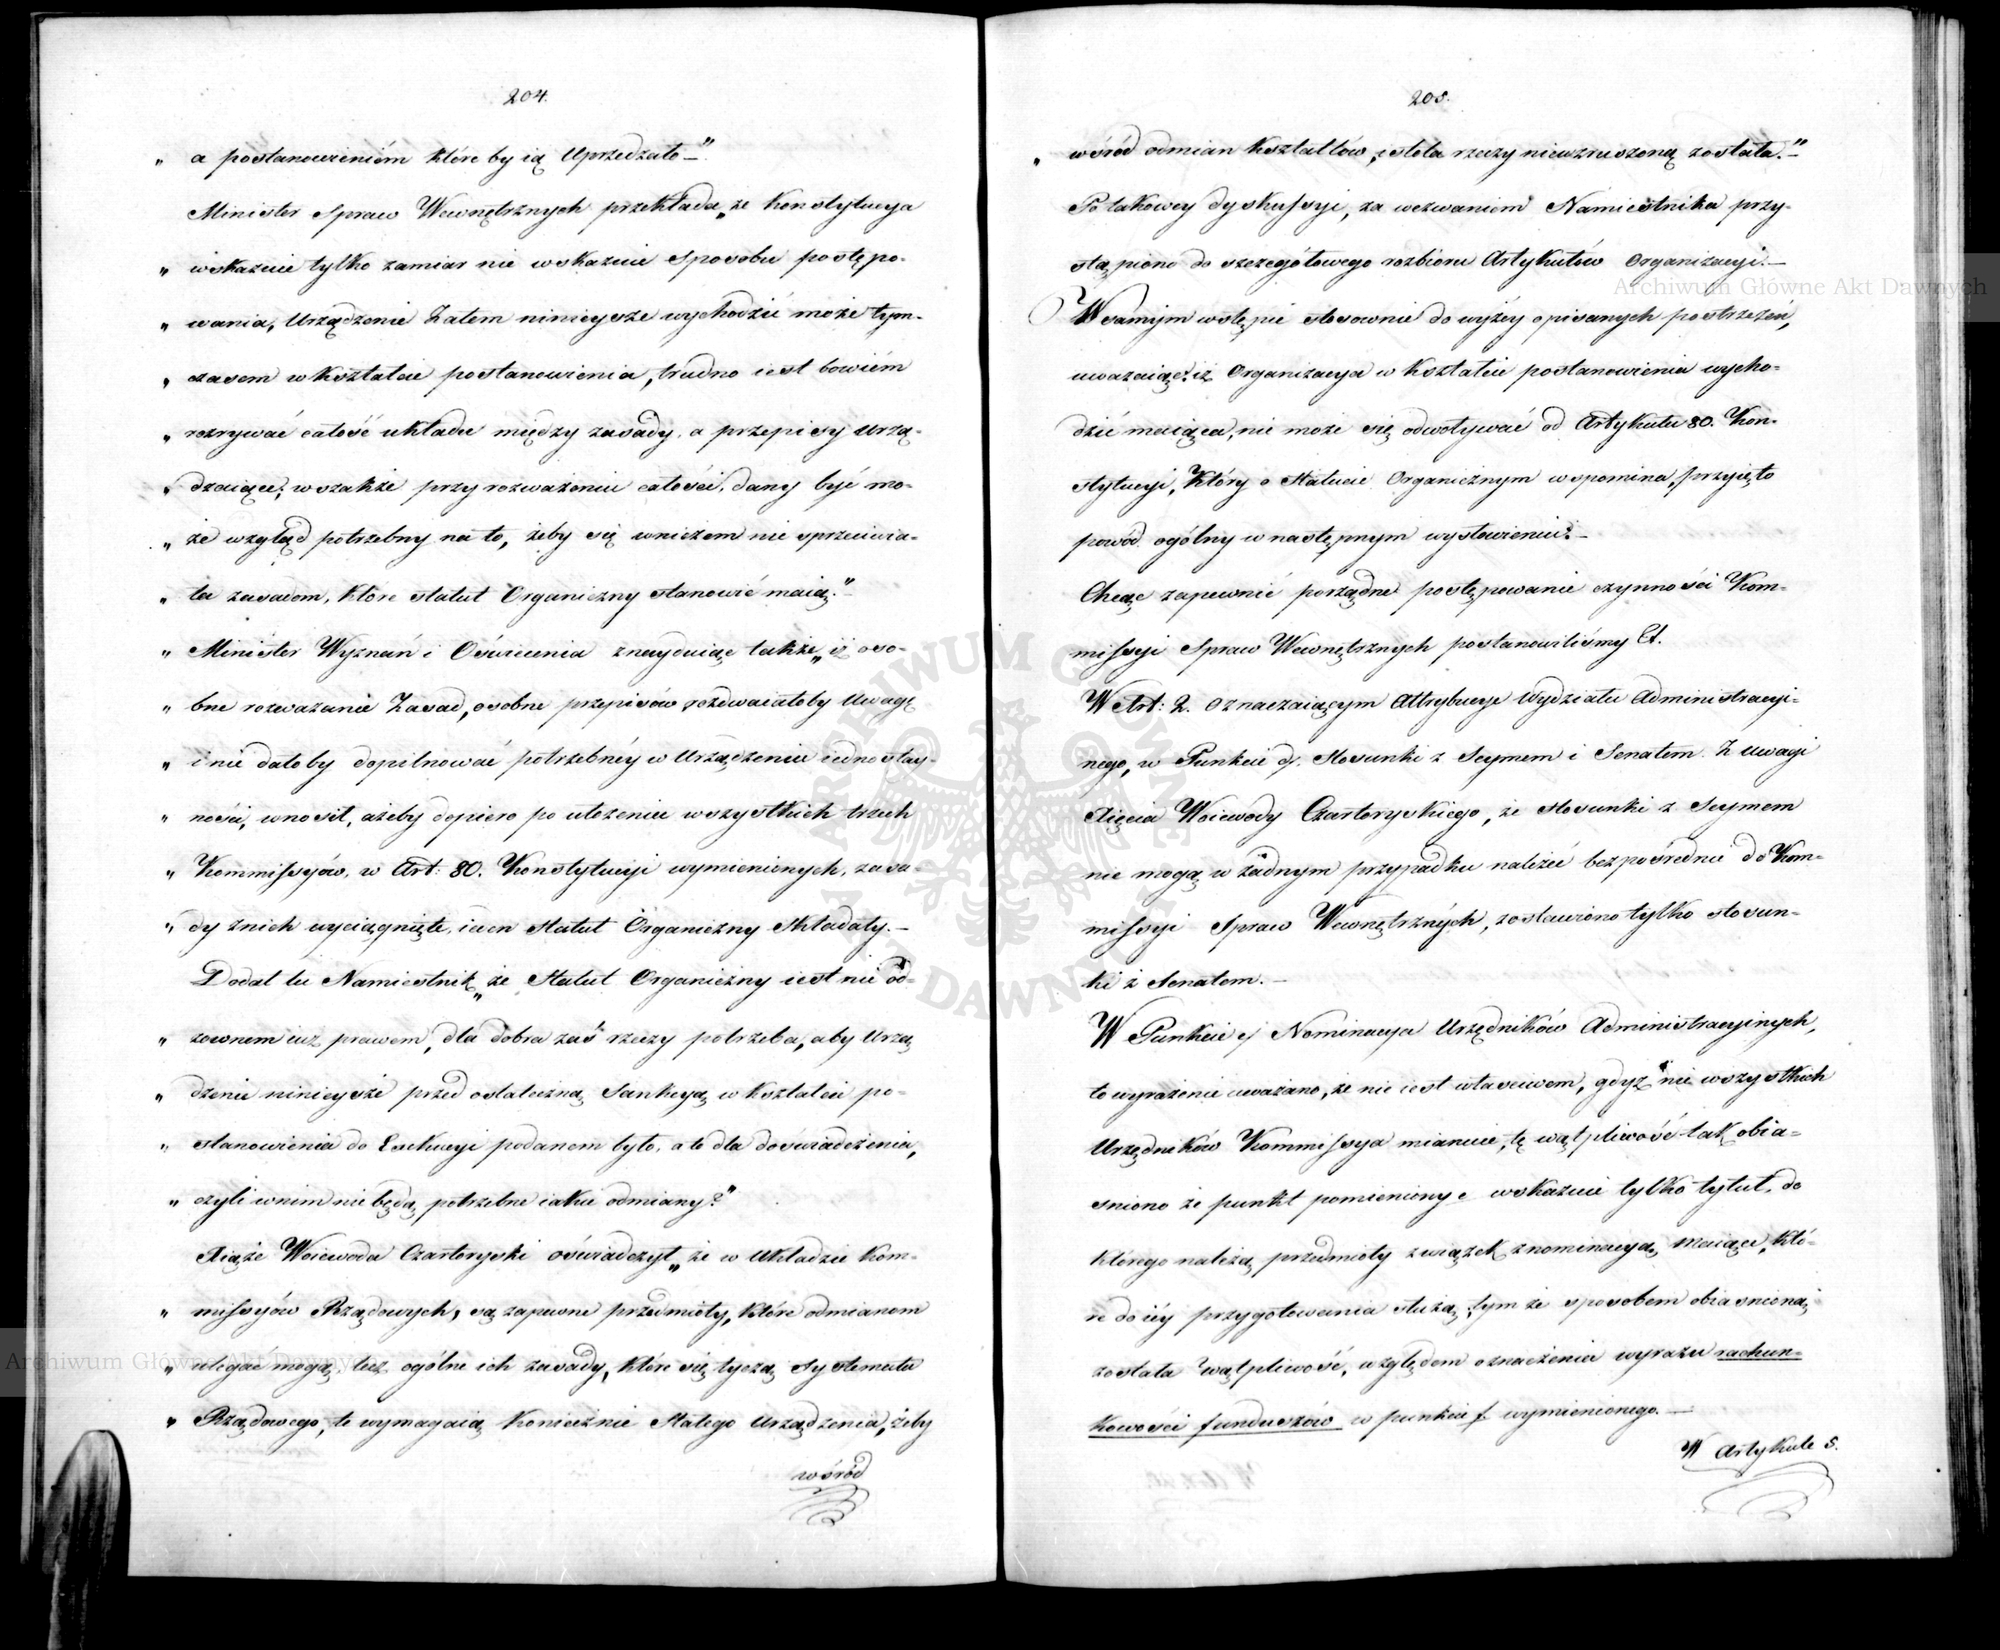 204.
„ a postanowieniém które by ią Uprzedzało —"
Minister Spraw Wewnętrznych przekłada „że Konstytucya
„ wskazuie tylko zamiar nie wskazuie Sposobu postępo-
„ wania, Urządzenie Zatem ninieysze wychodzić może tym-
„ czasem w kształcie postanowienia, trudno iest bowiém
„ rozrywać całość układu między zasady, a przepisy urzą-
„ dzaiące, wszakże przy rozważeniu całości, dany być mo-
„ że wzgląd potrzebny na to, żeby się wniczem nie sprzeciwia-
„ ła zasadom, które statut Organiczny stanowić maią."—
„ Minister Wyznań i Oświecenia znayduiąc także „iż oso-
„ bne rozważanie Zasad, osobne przepisów rozdwaiałoby Uwagę
„ i nie dało by dopilnować potrzebnéy w Urządzeniu iednostay-
„ ności, wnosił, ażeby dopiero po ułożeniu wszystkich trzech
„ Kommissyów, w Art: 80. Konstytucyi wymienionych, zasa-
„ dy znich wyciągnięte, ieden Statut Organiczny Składały.—
Dodał tu Namiestnik „że Statut Organiczny iest nie od-
„ zownem iuż prawem, dla dobra zaś rzeczy potrzeba, aby Urzą
„ dzenie ninieysze przed ostateczną Sankcyą w kształcie po-
„ stanowienia do Exekucyi podanem było, a to dla doświadczenia,
„ czyli wnim nie będą potrzebne iakie odmiany?"
Xiąże Woiewoda Czartoryski oświadczył „że w Układzie Kom-
„ missyów Rządowych, są zapewne przedmioty, które odmianom
„ ulegać mogą, lecz ogólne ich zasady, które się tyczą systematu
„ Rządowego, te wymagaią koniecznie Stałego Urządzenia, żeby
wśród
205.
„ wśród odmian Kształtów, istota rzeczy niewzruszoną została."—
Po takowey dyskussyi, za wezwaniem Namiestnika przy-
stąpiono do szczegółowego rozbioru Artykułów Organizacyi.—
W samym wstępie stosownie do wyżéy opisanych postrzeżeń,
uważaiąc, iż Organizacya w kształcie postanowienia wycho-
dzić maiąca, nie może się odwoływać od Artykułu 80. Kon-
stytucyi, Który o Statucie Organicznym wspomina, przyięto
powód ogólny w następnym wysłowieniu:—
Chcąc zapewnić porządne postępowanie czynności Kom-
missyi Spraw Wewnętrznych postanowiliśmy Et.
W Art: 2. Oznaczaiącym Attrybucye Wydziału Administracyi-
nego, w Punkcie d/. Stosunki z Seymem i Senatem. Z Uwagi
Xięcia Woiewody Czartoryskiego, że stosunki z Seymem
nie mogą w żadnym przypadku należéć bezpośrednio do Kom-
missyi Spraw Wewnętrznych, zostawiono tylko stosun-
ki z Senatem.—
W Punkcie e/ Nominacya Urzędników Administracyinych,
to wyrażenie uważano, że nie iest właściwem, gdyż nie wszystkich
Urzędników Kommissya mianuie, tę wątpliwość tak obia-
śniono że punkt pomieniony e wskazuie tylko tytuł, do
którego należą przedmioty związek znominacyą maiące, któ-
re do iéy przygotowania służą, tym że sposobem obiaśnioną
została wątpliwość, względem oznaczenia wyrazu rachun-
kowości funduszów w punkcie f wymienionego.—
W Artykule 5.
Archiwum Główne Akt Dawnych
Archiwum Główne Akt Dawnych
ARCHIWUM GŁÓWNE AKT DAWNYCH